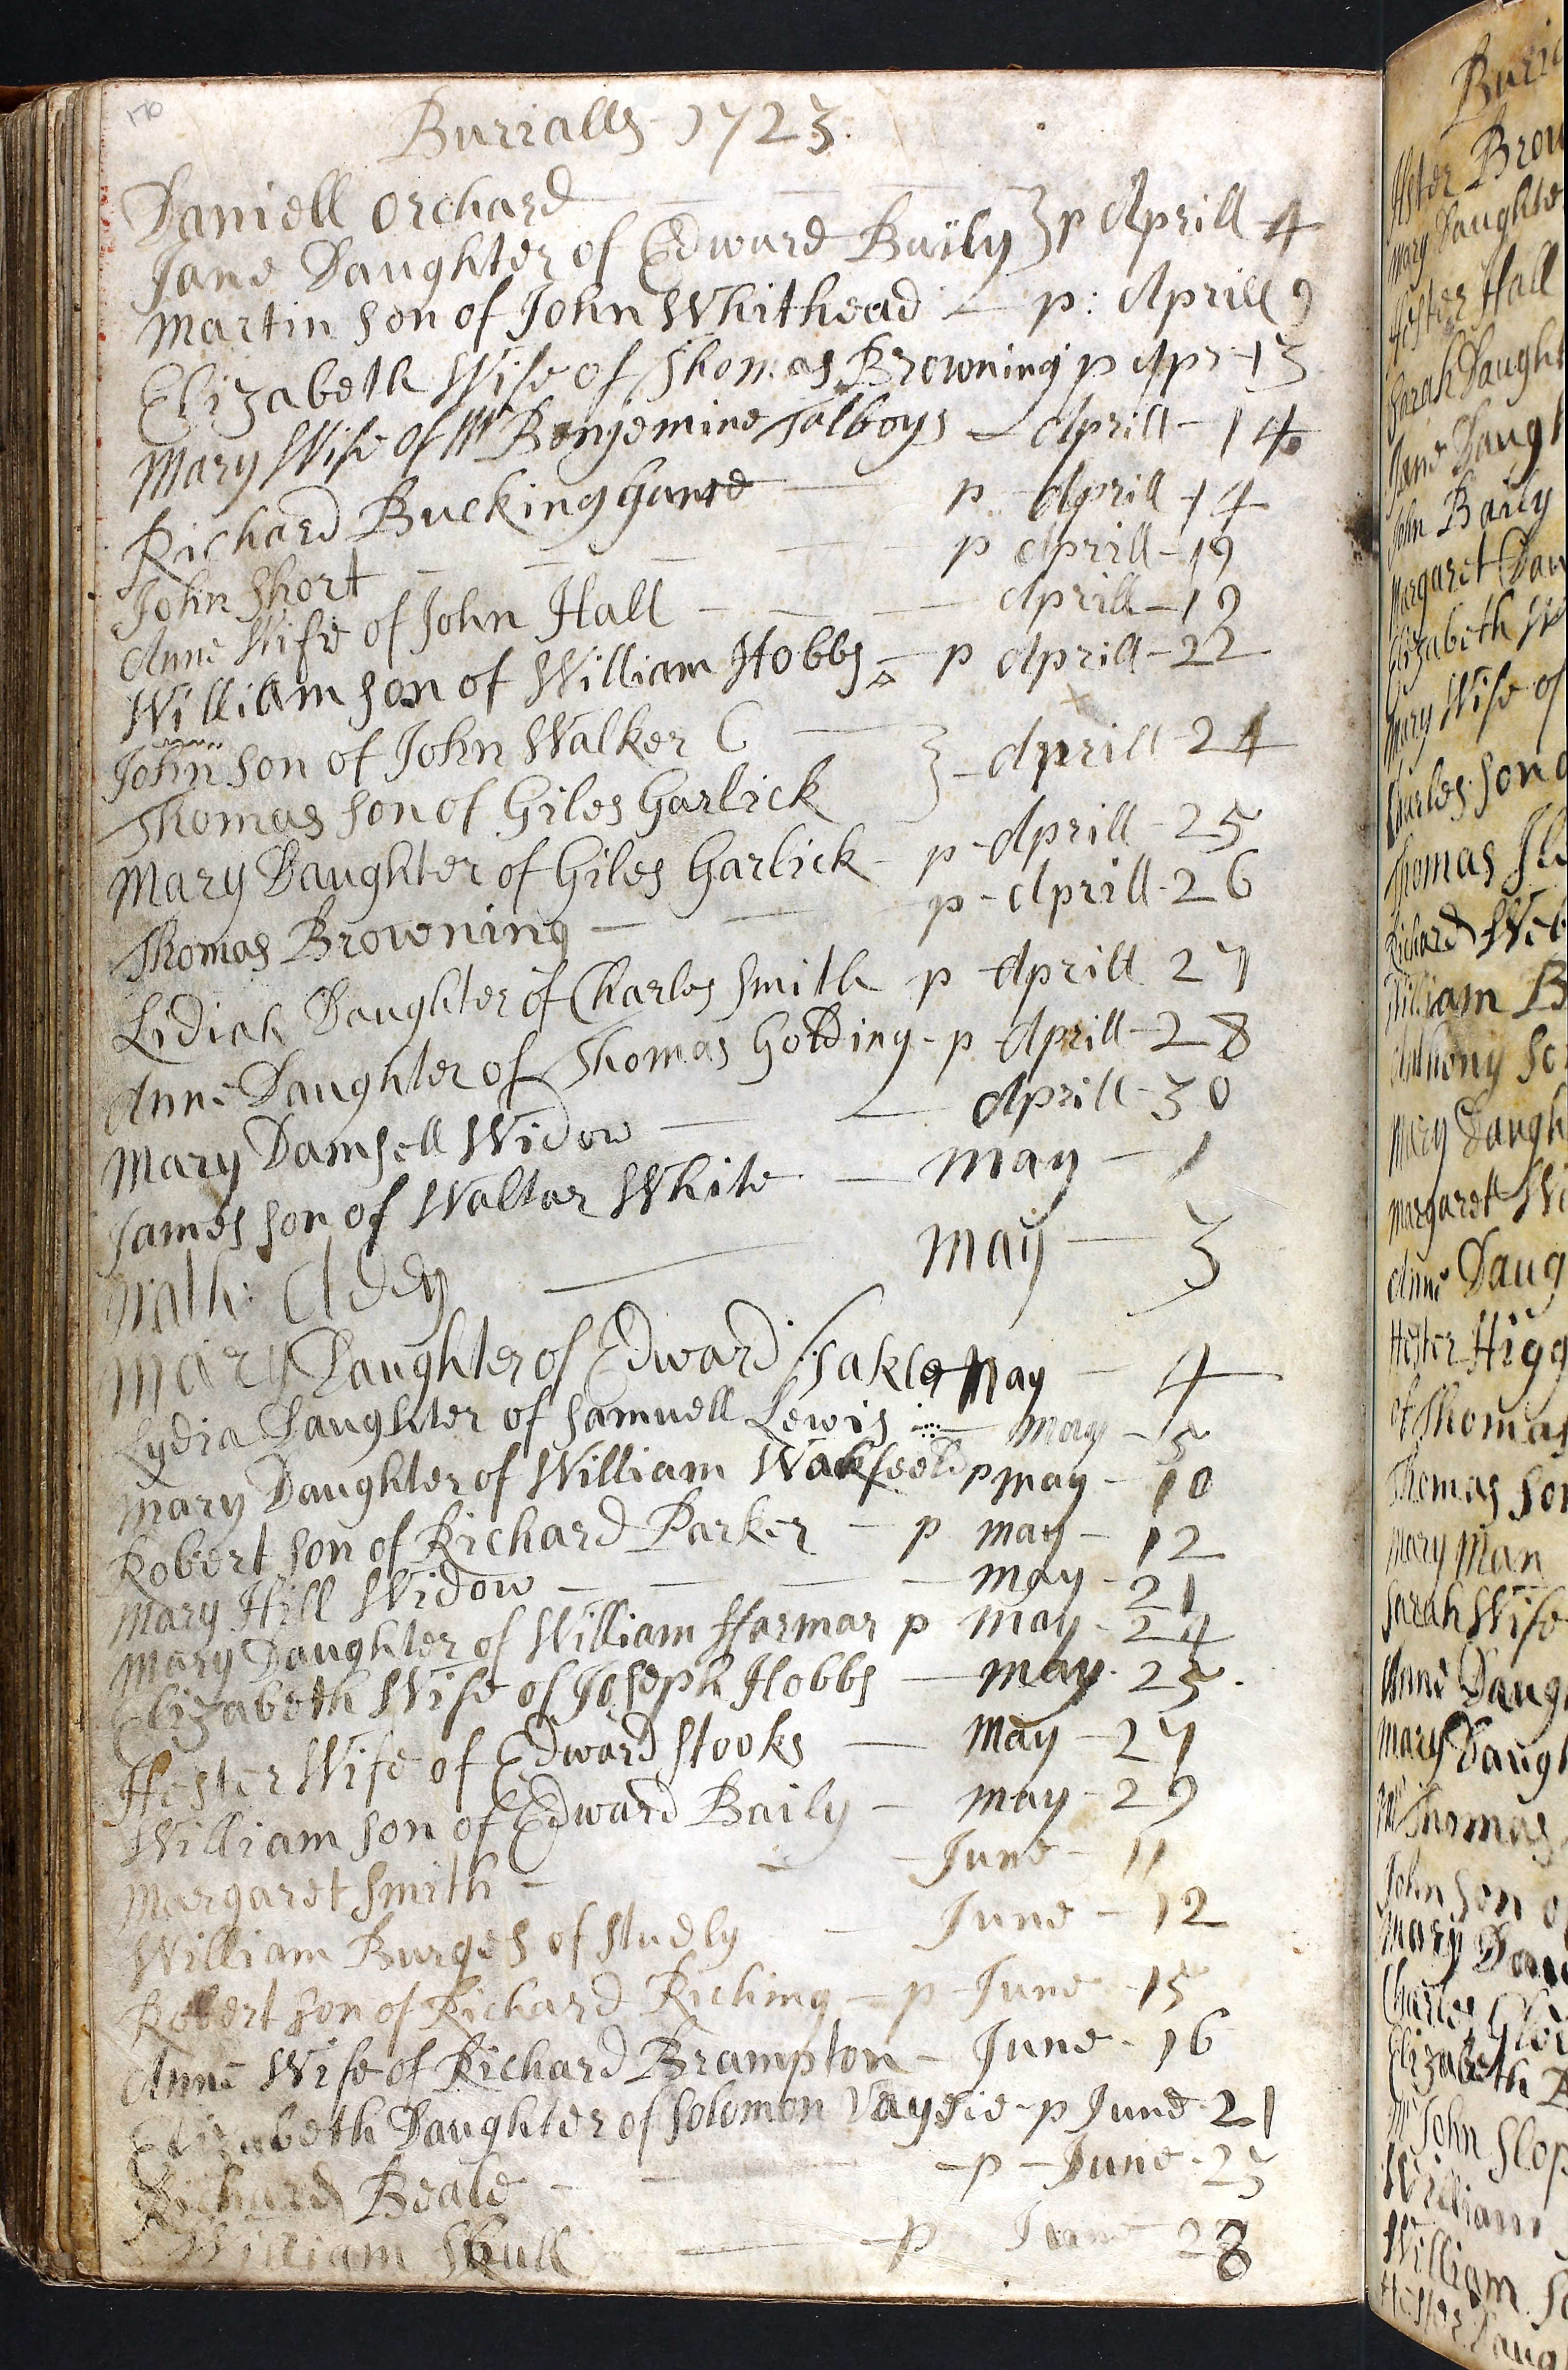 170
Burrialls 1723
Daniell Orchard
Jane Daughter of Edward Baily } p Aprill 4
Martin Son of John Whithead - p: Aprill 9
Elizabeth Wife of Thomas Browning p Apr 13
Mary Wife of Mr Benjemine Talboys - Aprill - 14
Richard Buckinghame - p Aprill 14
John Short - p Aprill - 19
Anne Wife of John Hall - Aprill - 19
William Son of William Hobbs - p Aprill - 22
John Son of John Walker C
Thomas Son of Giles Garlick } - Aprill 24
Mary Daughter of Giles Garlick - p - Aprill - 25
Thomas Browning - p - Aprill - 26
Lidiah Daughter of Charles Smith p Aprill 27
Anne Daughter of Thomas Golding - p Aprill - 28
Mary Damsell Widow - Aprill - 30
James Son of Waltar White - May - 1
Adey - May - 3
Mary Daughter of Edward May - 4
Lydia Daughter of Samuell Lewis - May - 5
Mary Daughter of William Wakfeeld p May - 10
Robert Son of Richard Parker - p May - 12
Mary Hill Widow - May - 21
Mary Daughter of William Harmar p May - 24
Elizabeth Wife of Joseph Hobbs - May - 25
Hester Wife of Edward Stooks - May - 27
William Son of Edward Baily - May - 29
Margaret Smith - June - 11
William Burges of Studly - June - 12
Robert Son of Richard Riching - p June - 15
Anne Wife of Richard Brampton - June - 16
Elizabeth Daughter of Solomon - p June - 21
Richard Beale - p - June - 25
William Skull - p June 28
Burri
Hester Brow
Mary Daughte
Hester Hall
Sarah Daught
Jane Daugh
John Baily
Margaret Dau
Elizabeth W
Mary Wife of
Charles Son o
Thomas
Richard Web
William B
Anthony So
Mary Daugh
Margarett W
Anne Daug
Hester Higg
of Thomas
Thomas Son
Mary Man
Sarah Wife
Anne Daug
Mary Daugh
Mr Thomas
John Son o
Mary Dau
Charles
Elizabeth B
Mr John Slop
William
William So
Hester Daug